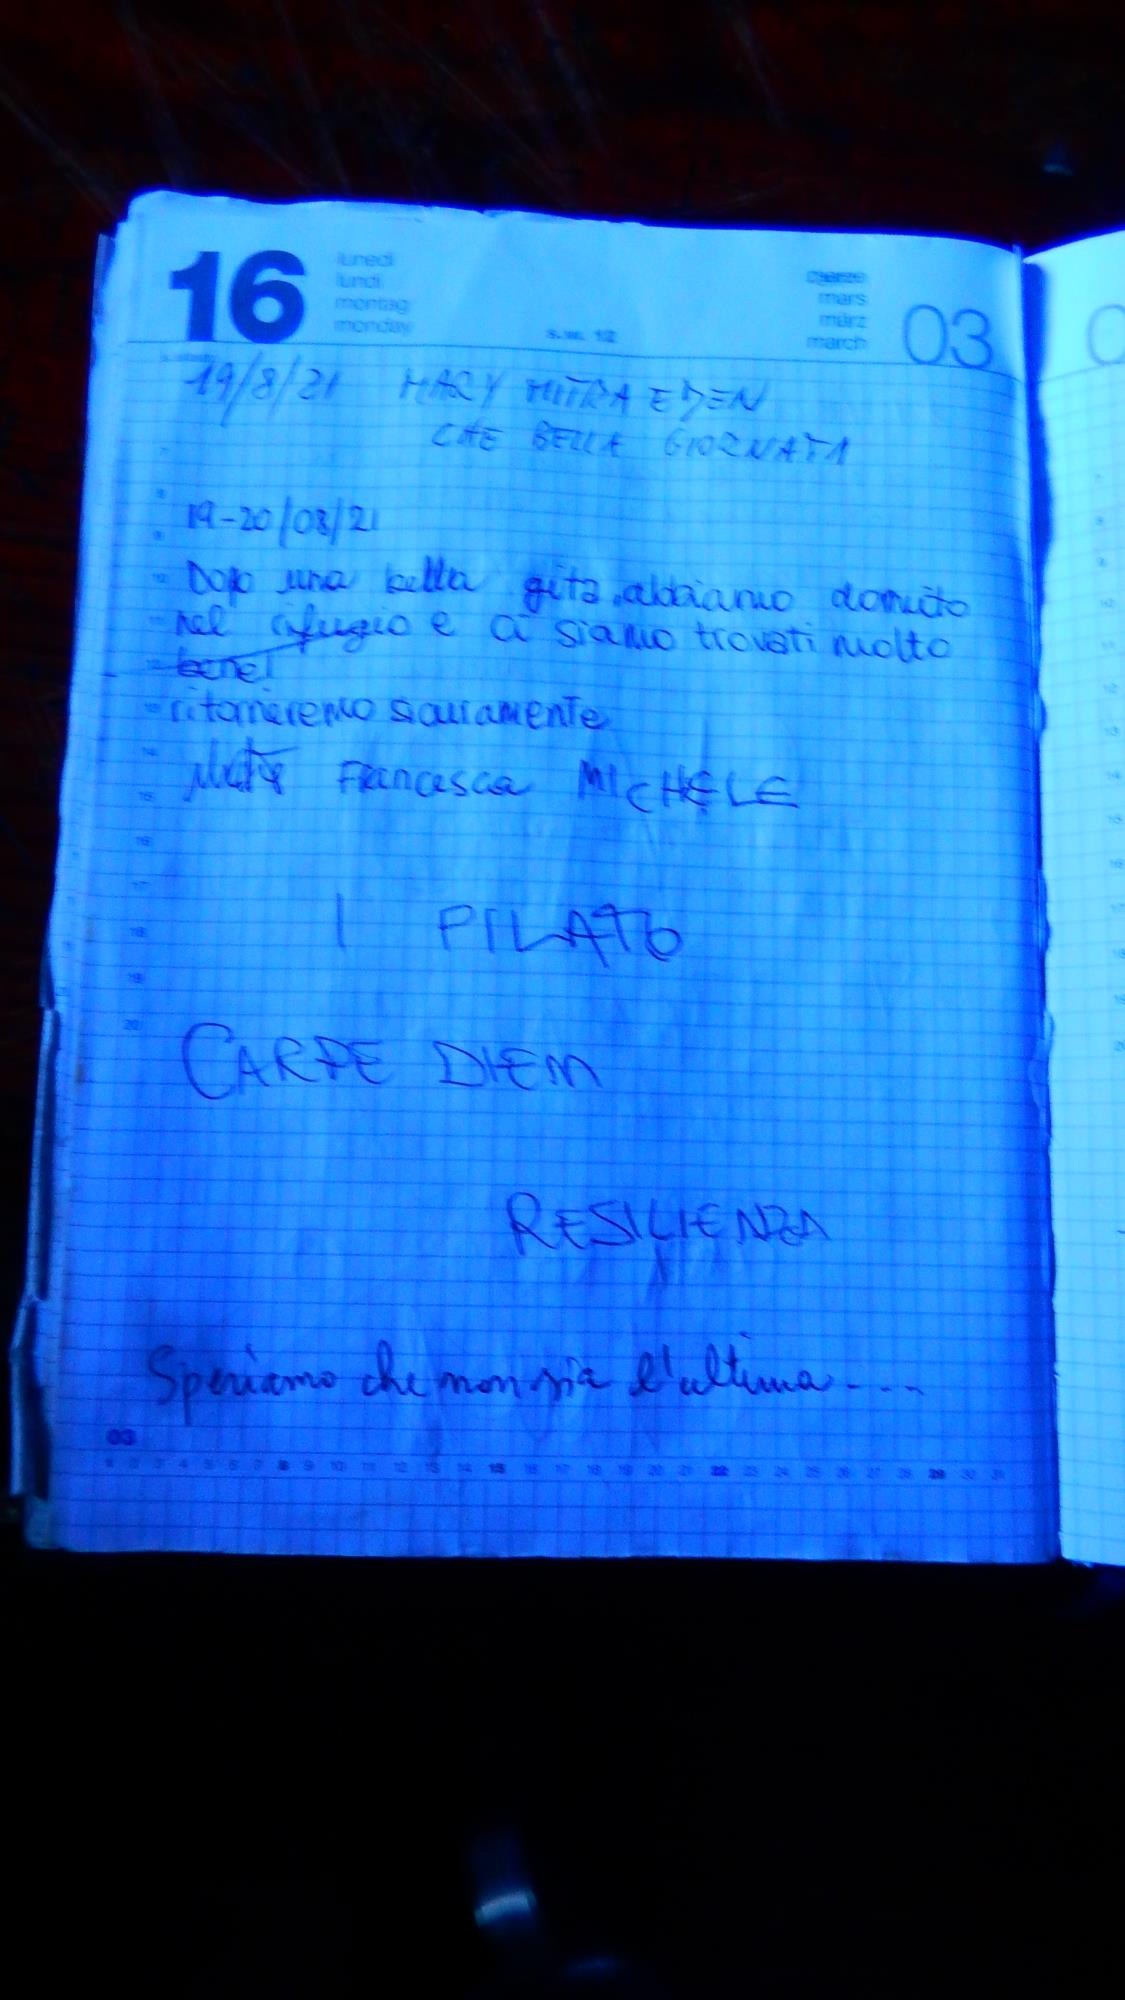 16
lunedi
lundi
montag
monday
s.w. 12
marzo
mars
märz
march
03
19/8/21 MARY MITRA EDEN
CHE BELLA GIORNATA
19-20/08/21
Dopo una bella gita, abbiamo dormito
nel rifugio e ci siamo trovati molto
bene!
ritorneremo sicuramente
Francesca MICHELE
I PILATO
CARPE DIEM
RESILIENZA
Speriamo che non sia l'ultima....
03
1 2 3 4 5 6 7 8 9 10 11 12 13 14 15 16 17 18 19 20 21 22 23 24 25 26 27 28 29 30 31